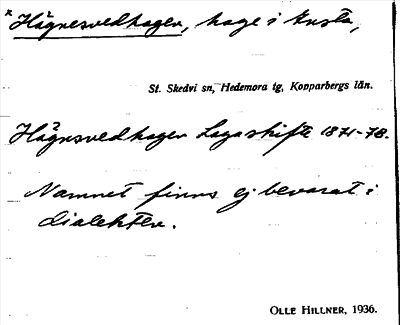 * Hågnesvedhagen, hage i Knsta,
St. Skedvi sn, Hedemora tg, Kopparbergs län.
Hågnsvedhagen Lagaskifte 1871-78.
Namnet finns ej bevarat i
dialekten.
OLLE HILLNER, 1936.